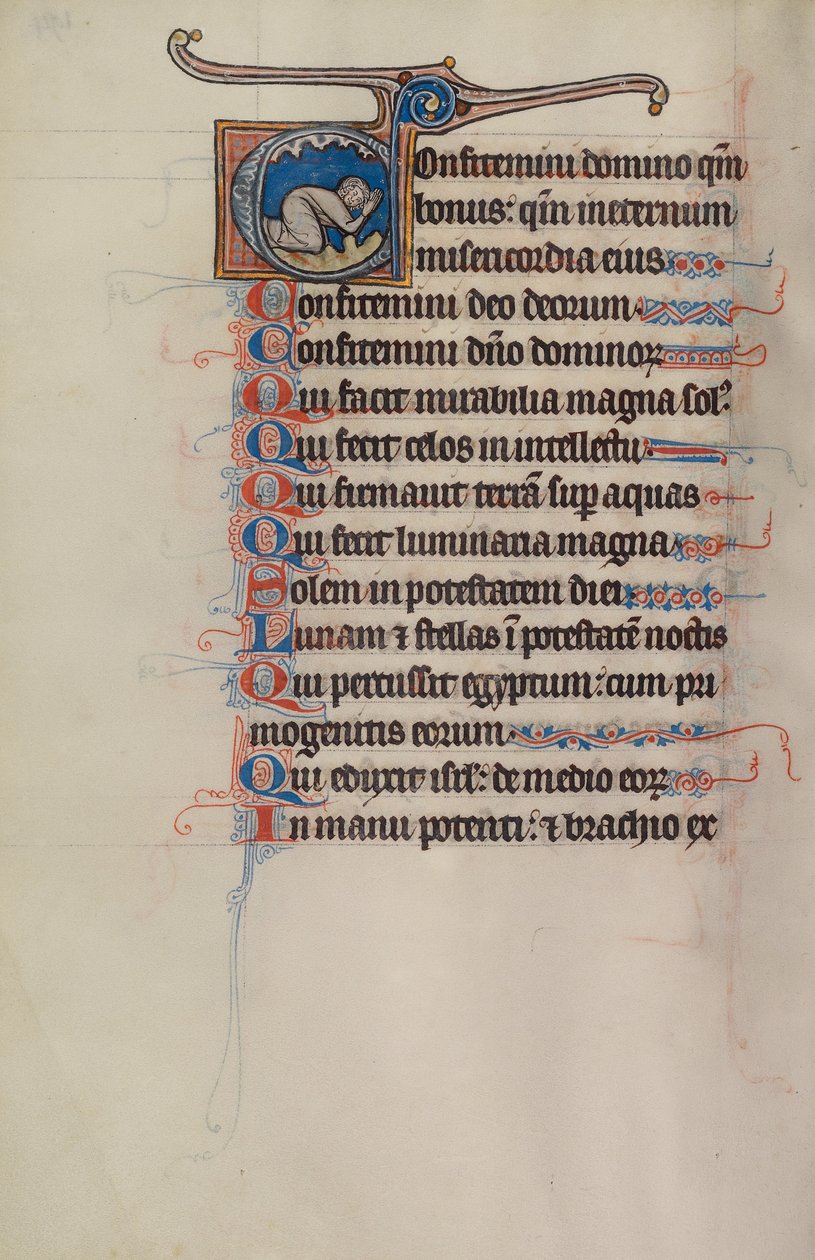 Confitemini domino qm̄
bonus: qm̄ ineternum
misericordia eius
Confitemini deo deorum.
Confitemini dn̄o dominoꝝ
Qui facit mirabilia magna solꝰ
Qui fecit celos in intellectu.
Qui firmauit terrā sup̄ aquas
Qui fecit luminaria magna
Solem in potestatem diei
Lunam ⁊ stellas ī potestatē noctis
Qui percussit egyptum: cum pri
mogenitis eorum.
Qui eduxit isrl̄: de medio eoꝝ
In manu potenti: ⁊ brachio ex